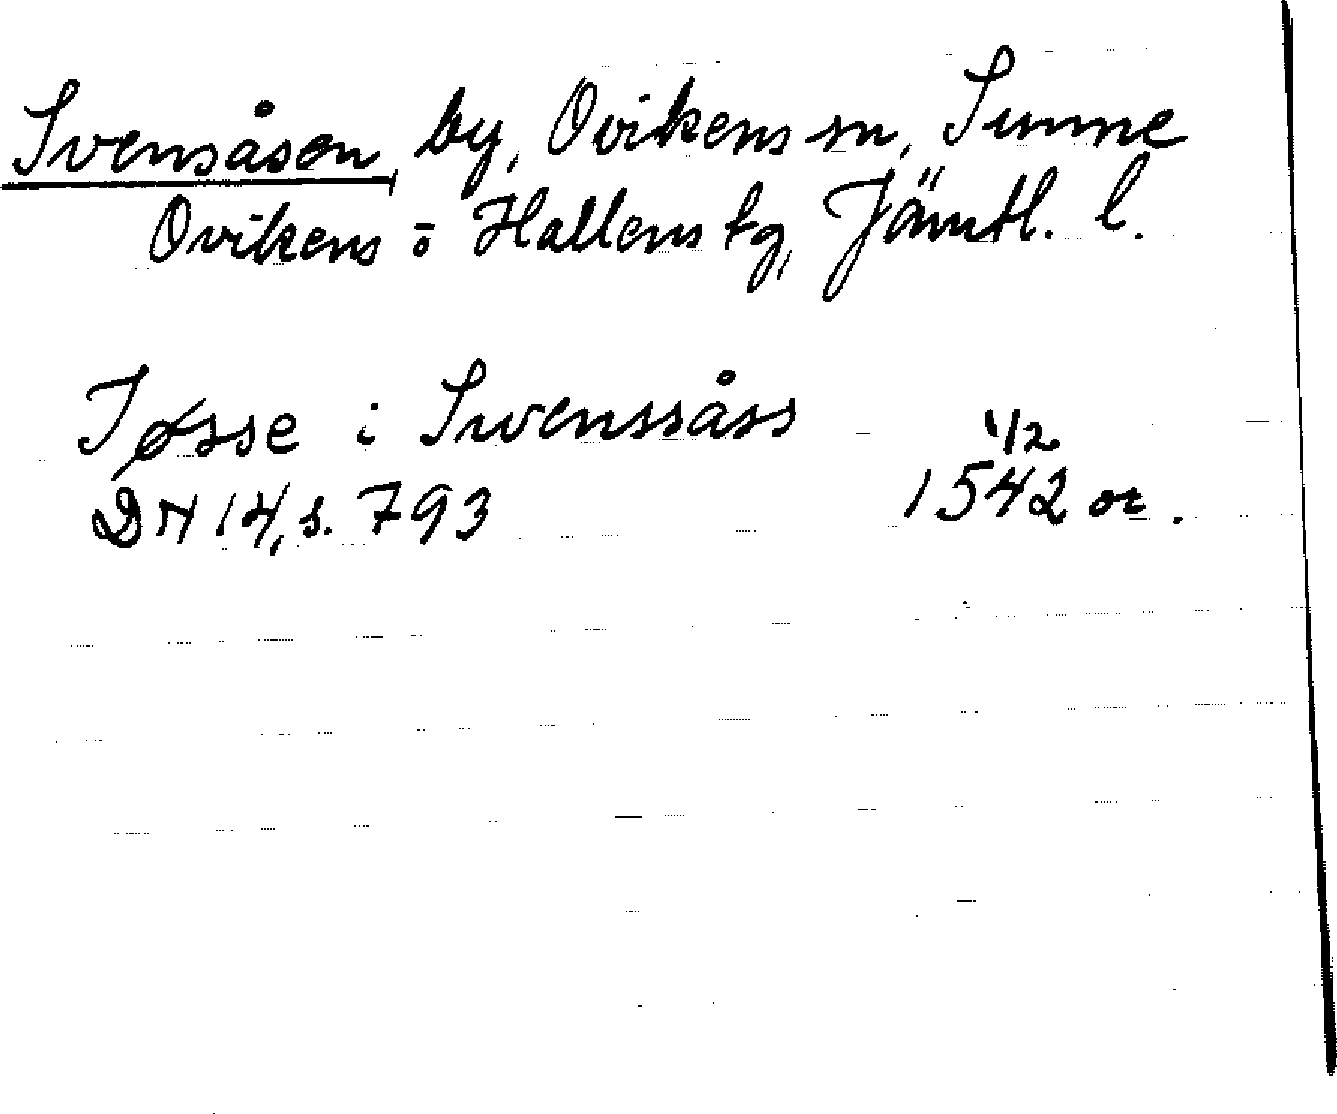 Svensåsen, by, Ovikens sn, Sunne
Ovikens o Hallens tg, Jämtl. l.
Jøsse i Swenssåss
DN 14, s. 793
1/2
1542 or.